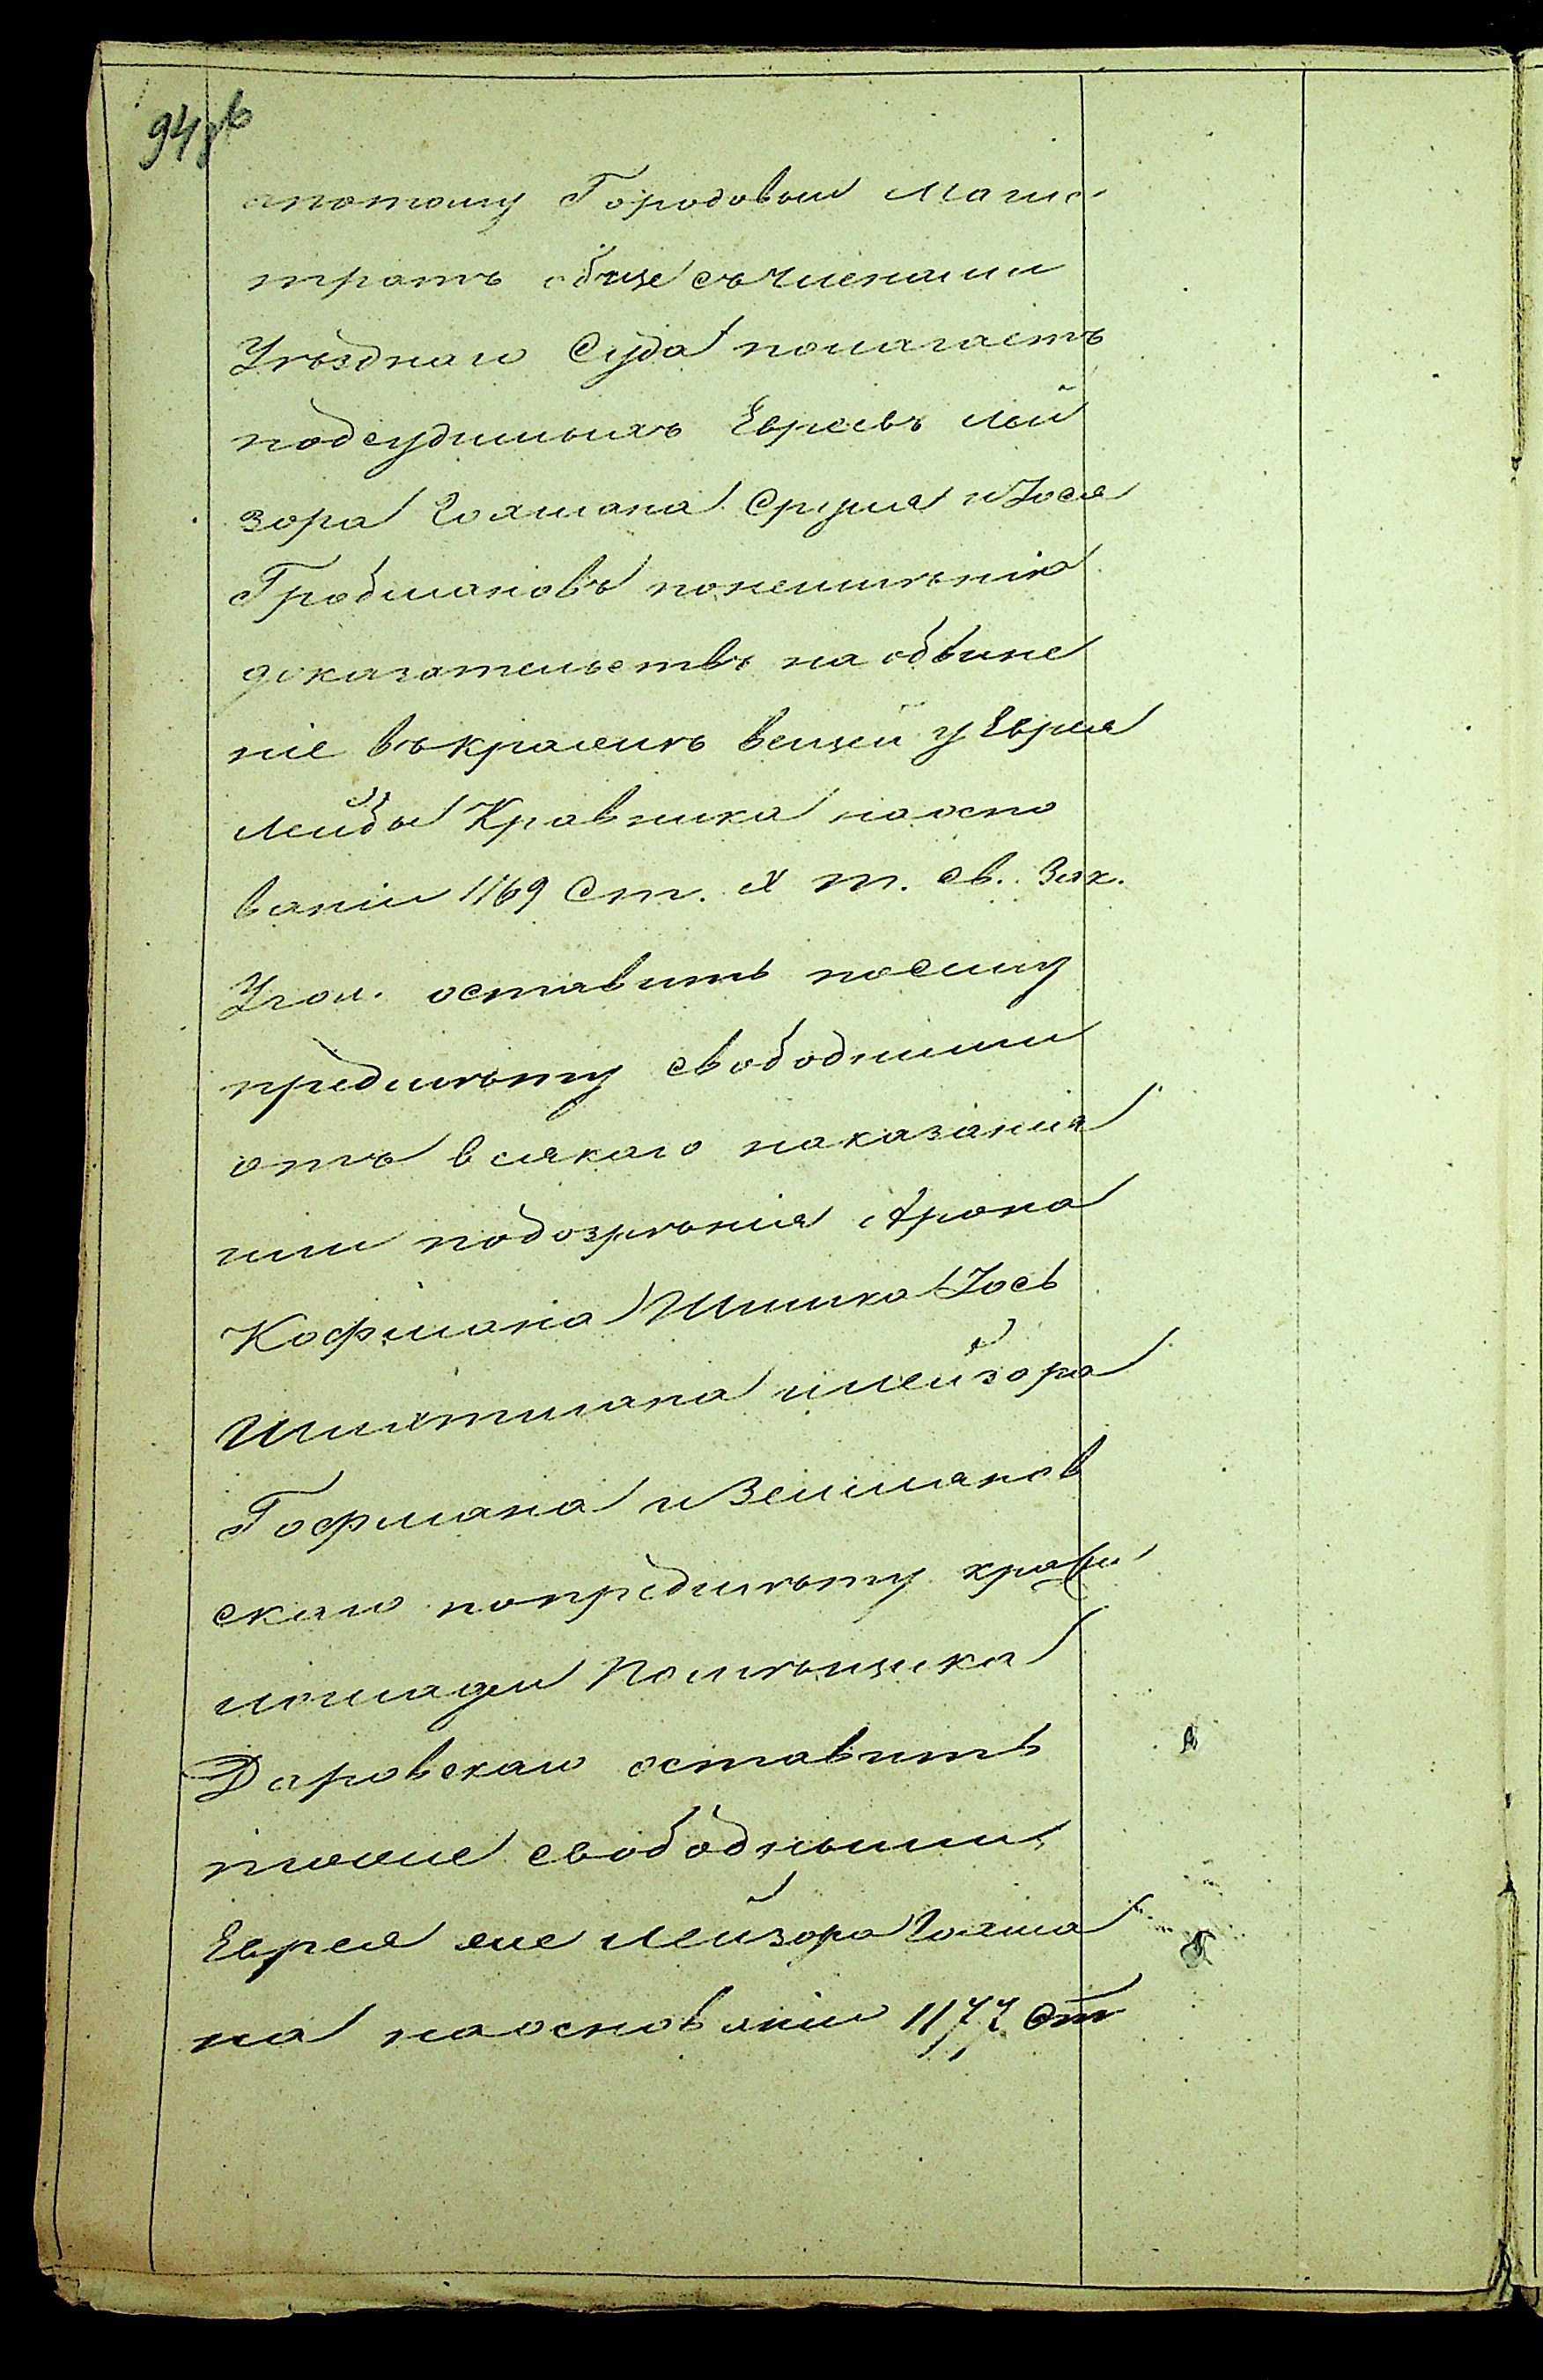 94об
апотому Городовый Магис-
тратъ обще съчленами
Уѣзднаго Суда полагаетъ
подсудимыхъ Евреевъ Лей
зора Гохмана Сруля и Іося
Гробмановъ понеимѣнію
доказательствъ на обвине
ніе въкражѣ вещей у Еврея
Лейбы Кравчика наосно
ваніи 1169 Ст. X т. Св. Зак.
Угол. оставить посему
предмѣту свободними
отъ всякаго наказанія
или подозрѣнія Арона
Кофмана Шлиома Іось
Шлихтмана иЛейзора
Гофмана иЗелманов
скаго попредмѣту кражи
лошади Помѣщика
Даровскаго оставить
тоже свободными
Еврея же Лейзора Гохма
на наоснованіи 1177 Ст